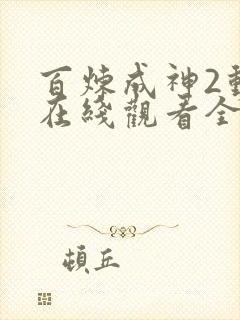 百炼成神2
在綫觀看全
頓丘